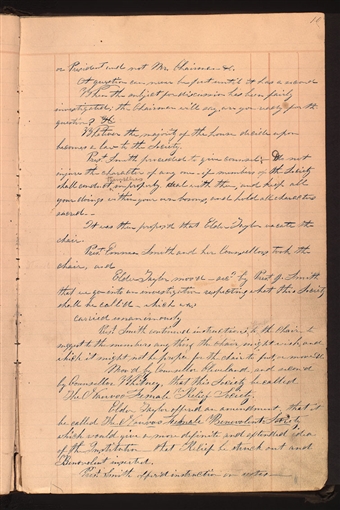 or President and not Mr. Chairman &c.
A question can never be put until it has a second
When the subject for discussion has been fairly
investigated; the Chairman will say, are you ready for the
question? &c.
Whatever the majority of the house decide upon
becomes a law to the Society.
Prest. Smith proceeded to give counsel— Do not
injure the character of any one— if members of the Society
shall conduct improperly, deal with them, and keep all
your doings within your own bosoms, and hold all characters
sacred—
It was then propos'd that Elder Taylor vacate the
chair.
Prest. Emma Smith and her Counsellors took the
chair, and
Elder Taylor mov'd— sec'd by Prest. J. Smith
that we go into an investigation respecting what this Society
shall be call'd— which was
carried unanimously
Prest. Smith continued instructions to the Chair to
suggest to the members anything the chair might wish, and
which it might not be proper for the chair to put, or move &c.
Mov'd by Counsellor Cleveland, and secon'd
by Counsellor Whitney, that this Society be called
The Nauvoo Female Relief Society.
Elder Taylor offered an amendment, that it
be called The Nauvoo Female Benevolent Society
which would give a more definite and extended idea
of the Institution— that Relief be struck out and
Benevolent inserted.
Prest. Smith offer'd instruction on votes—